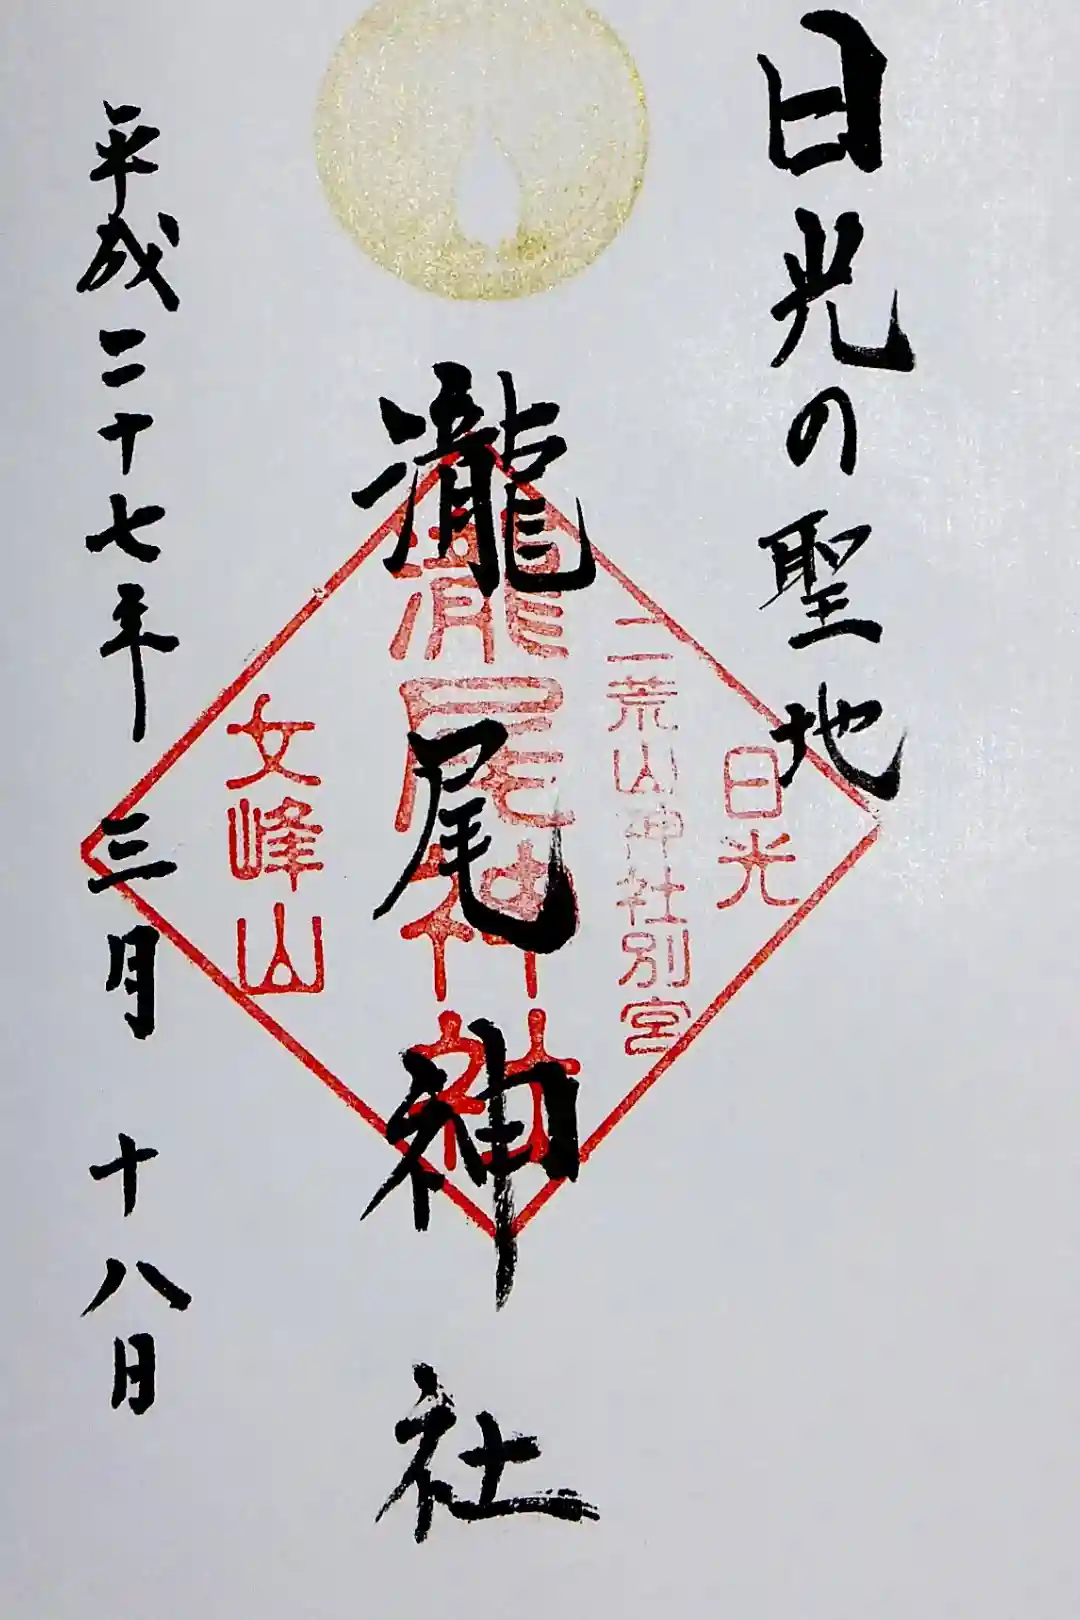 日光の聖地
日光
二荒山神社別宮
瀧尾神社
瀧尾神社
文峰山
平成二十七年 三月 十八日